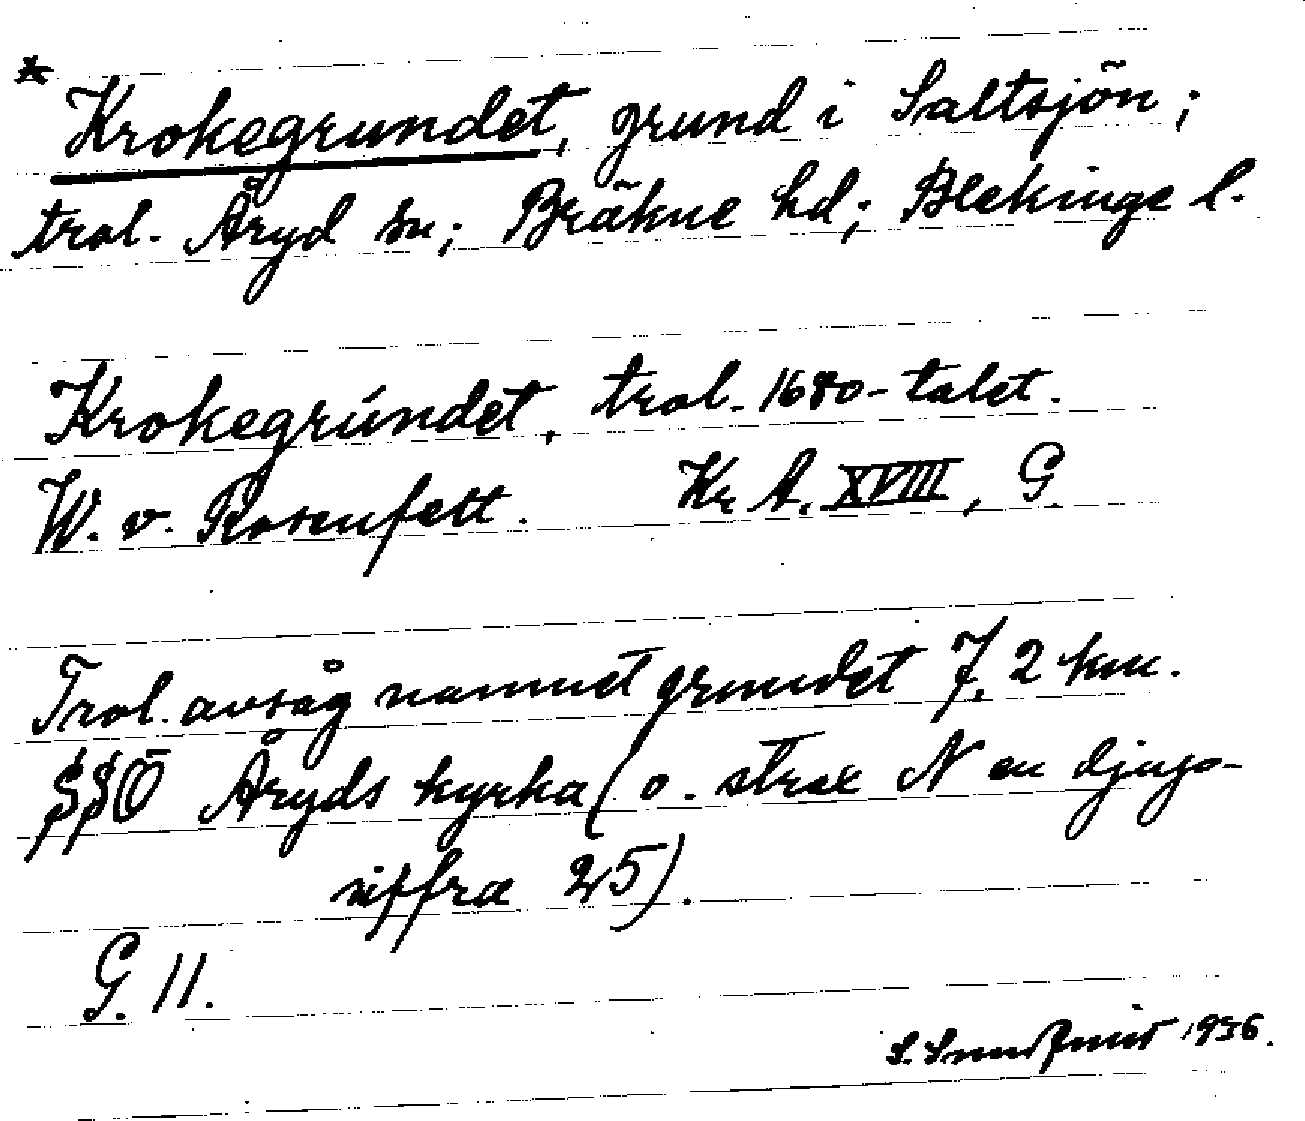 * Krokegrundet, grund i Saltsjön;
trol. Åryd sn; Bräkne hd; Blekinge l.
Krokegrúndet, trol. 1680-talet.
W. v. Rosenfelt. Kr. A. XVIII, G.
Trol. avsåg namnet grundet 7,2 km.
SSÖ Åryds kyrka (o. strax N en djups-
siffra 25).
G. 11.
S. 1936.